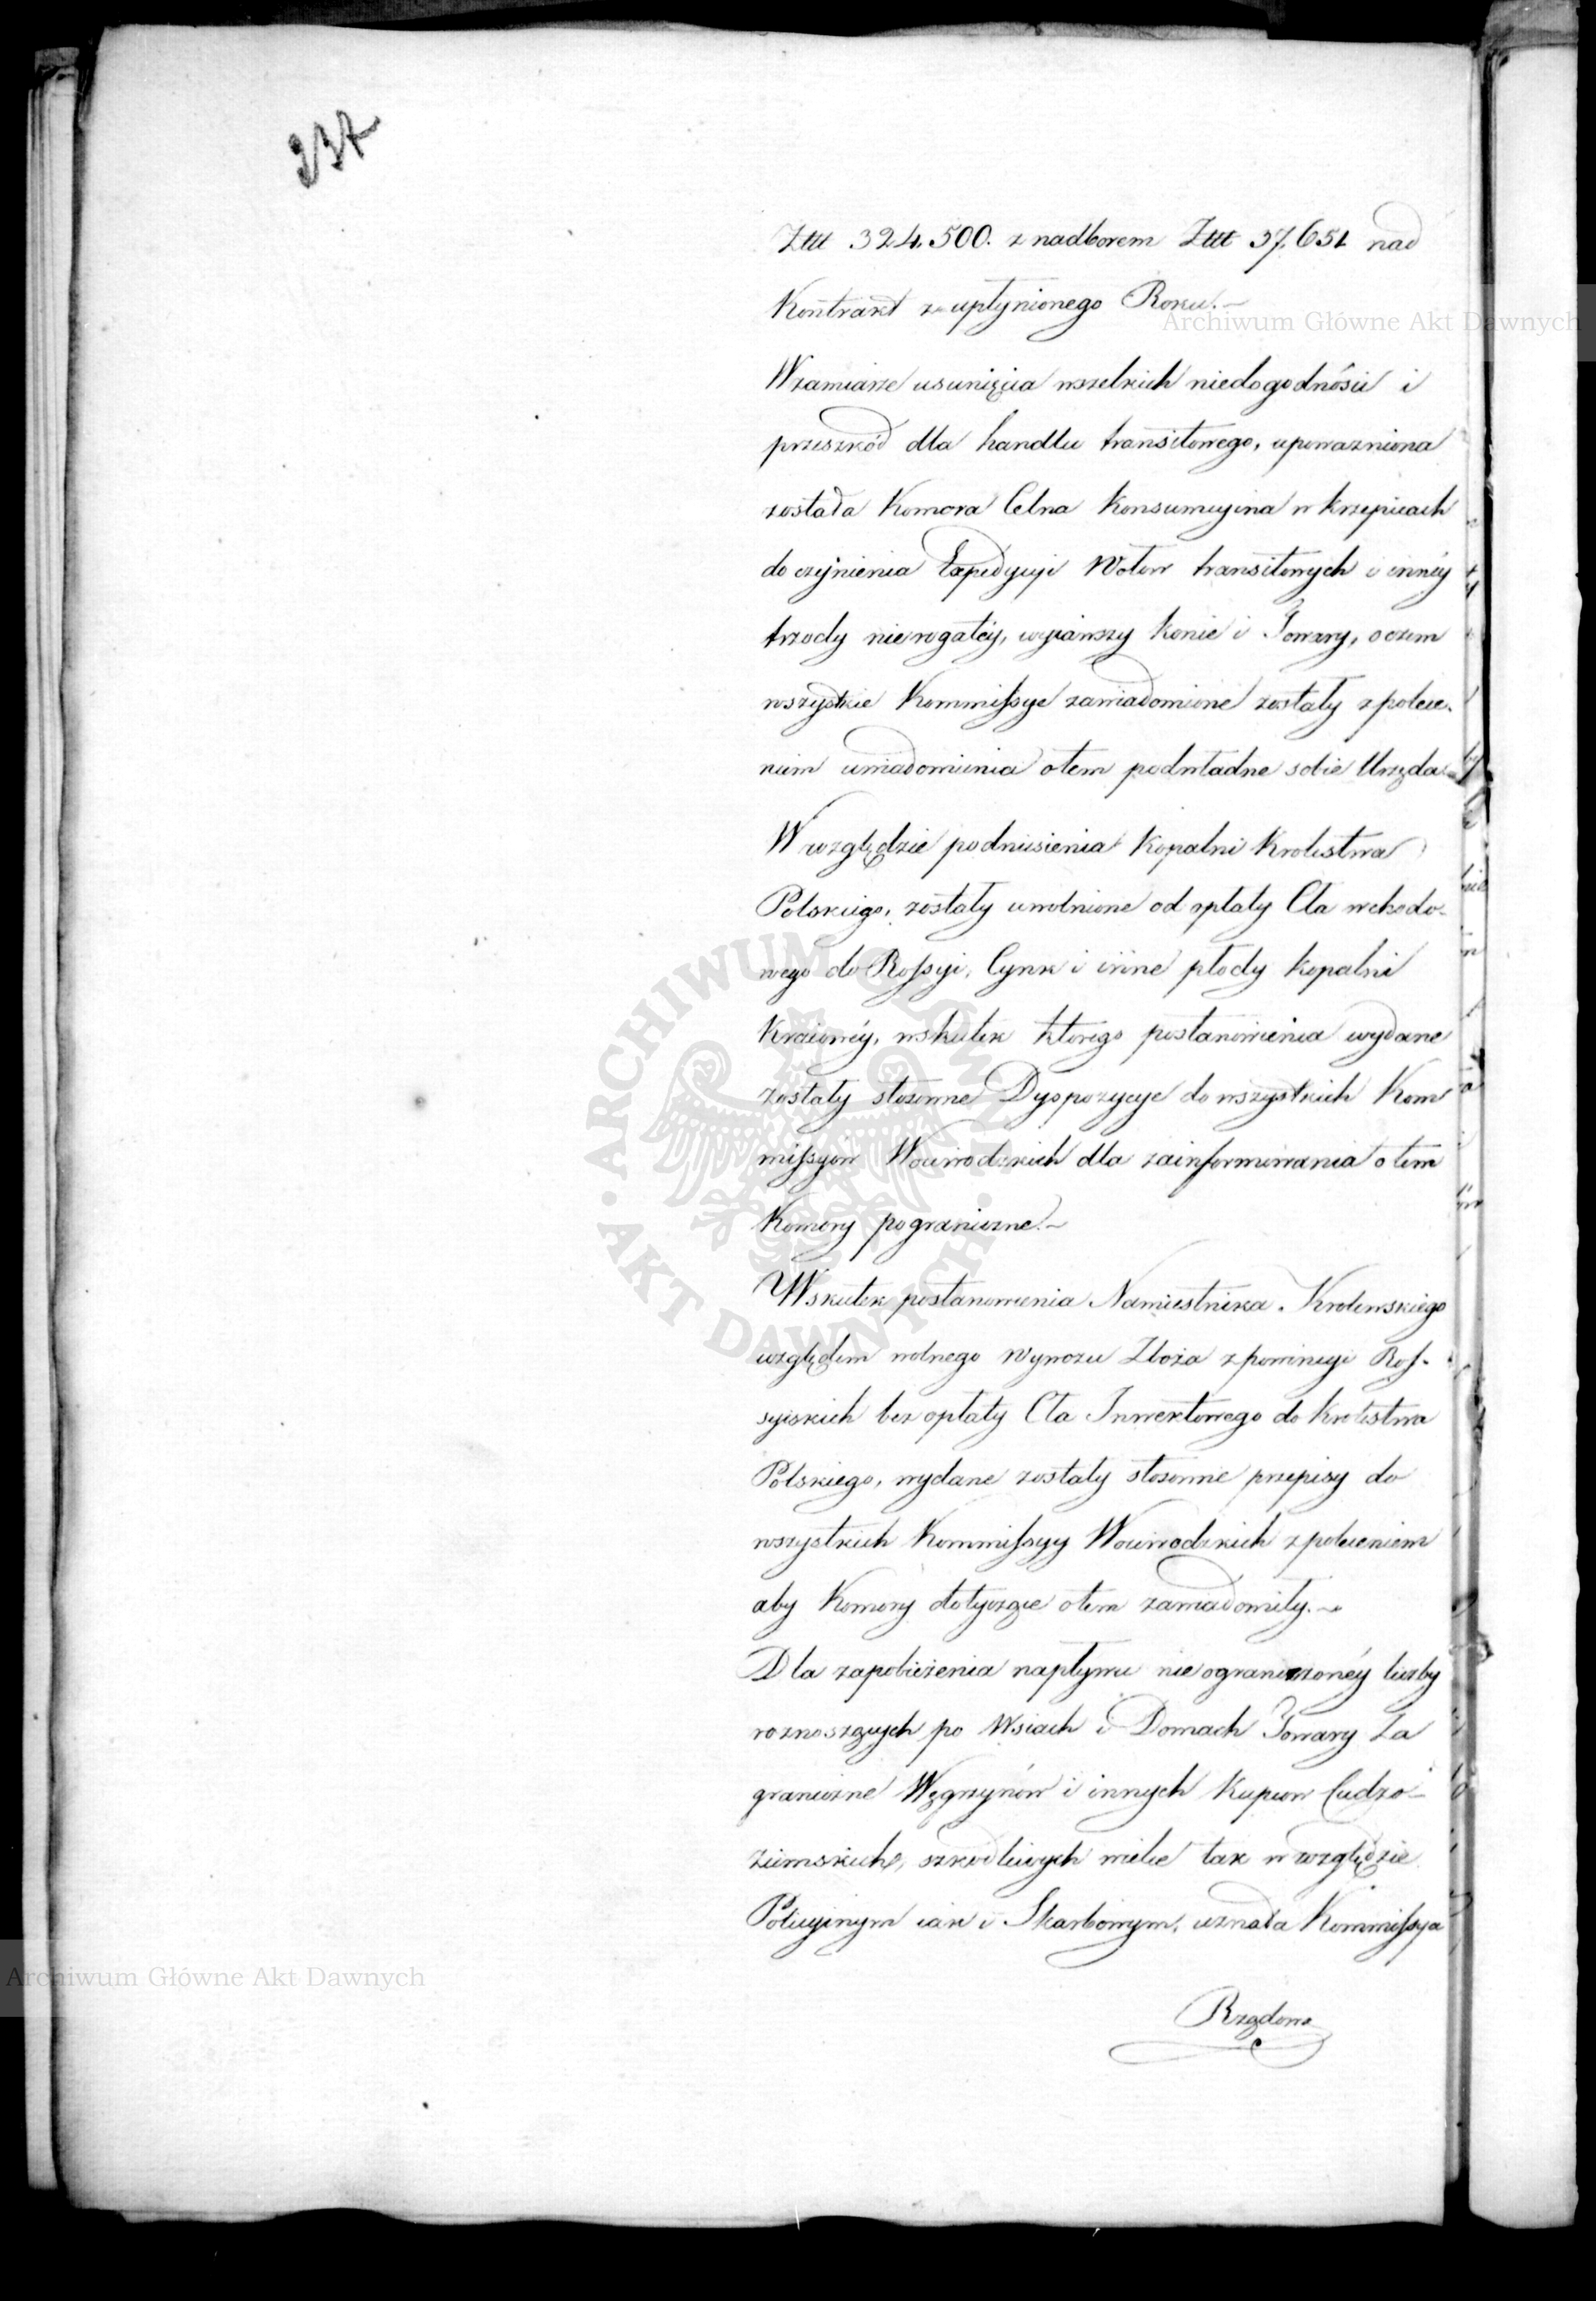 237
Zttt 324,500. z nadborem Zttt 37,651 nad
Kontrakt z upłynionego Roku.
W zamiarze usunięcia wszelkich niedogodności i
przeszkód dla handlu transitowego, upoważniona
została Komora Celna Konsumcyina w Krzepicach
do czynienia Expedycyi Wołow transitowych i innéy
trzody nierogatéy, wyiąwszy konie i Towary, o czem
wszystkie Kommissye zawiadomione zostały z polece-
niem uwiadomienia o tem podwładne sobie Urzęda
W względzie podniesienia kopalni Krolestwa
Polskiego, zostały uwolnione od opłaty Cła wchodo-
wego do Rossyi, Cynk i inne płody kopalni
Kraiowéy, wskutek ktorego postanowienia wydane
zostały stosowne Dyspozycye do wszystkich Kom
missyow Woiewodzkich dla zainformowania o tem
Komory pograniczne.
Wskutek postanowienia Namiestnika Krolewskiego
względem wolnego wywozu Zboża z prowincyi Ros-
syiskich bez opłaty Cła Inwektowego do Krolestwa
Polskiego, wydane zostały stosowne przepisy do
wszystkich Kommissyy Woiewodzkich z poleceniem
aby Komory dotyczące o tem zawiadomiły.
Dla zapobieżenia napływu nieograniczonéy liczby
roznoszących po Wsiach i Domach Towary Za
graniczne Węgrzynów i innych Kupcow Cudzo-
ziemskich, szkodliwych wielce tak w względzie
Policyinym iak i Skarbowym, uznała Kommissya
Rządowa
Archiwum Główne Akt Dawnych
ARCHIWUM GŁÓWNE AKT DAWNYCH
Archiwum Główne Akt Dawnych